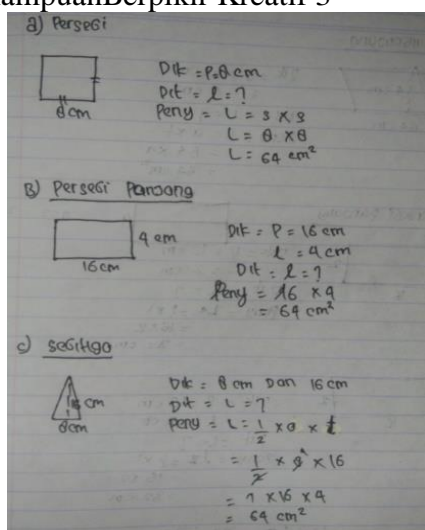 ampuanBerpikir Kreatif 3
a) Persegi
8 cm
Dik = P=8 cm
Dit = l = ?
Peny = L = s x s
L = 8 x 8
L = 64 cm²
B) Persegi Panjang
4 cm
16 cm
Dik = P = 16 cm
l = 4 cm
Dit = l = ?
Peny = 16 x 4
= 64 cm²
c) Segitiga
cm
8cm
Dik = 8 cm Dan 16 cm
Dit = L = ?
Peny = L = 1/2 x a x t
= 1/2 x 8 x 16
= 1 x 16 x 4
= 64 cm²